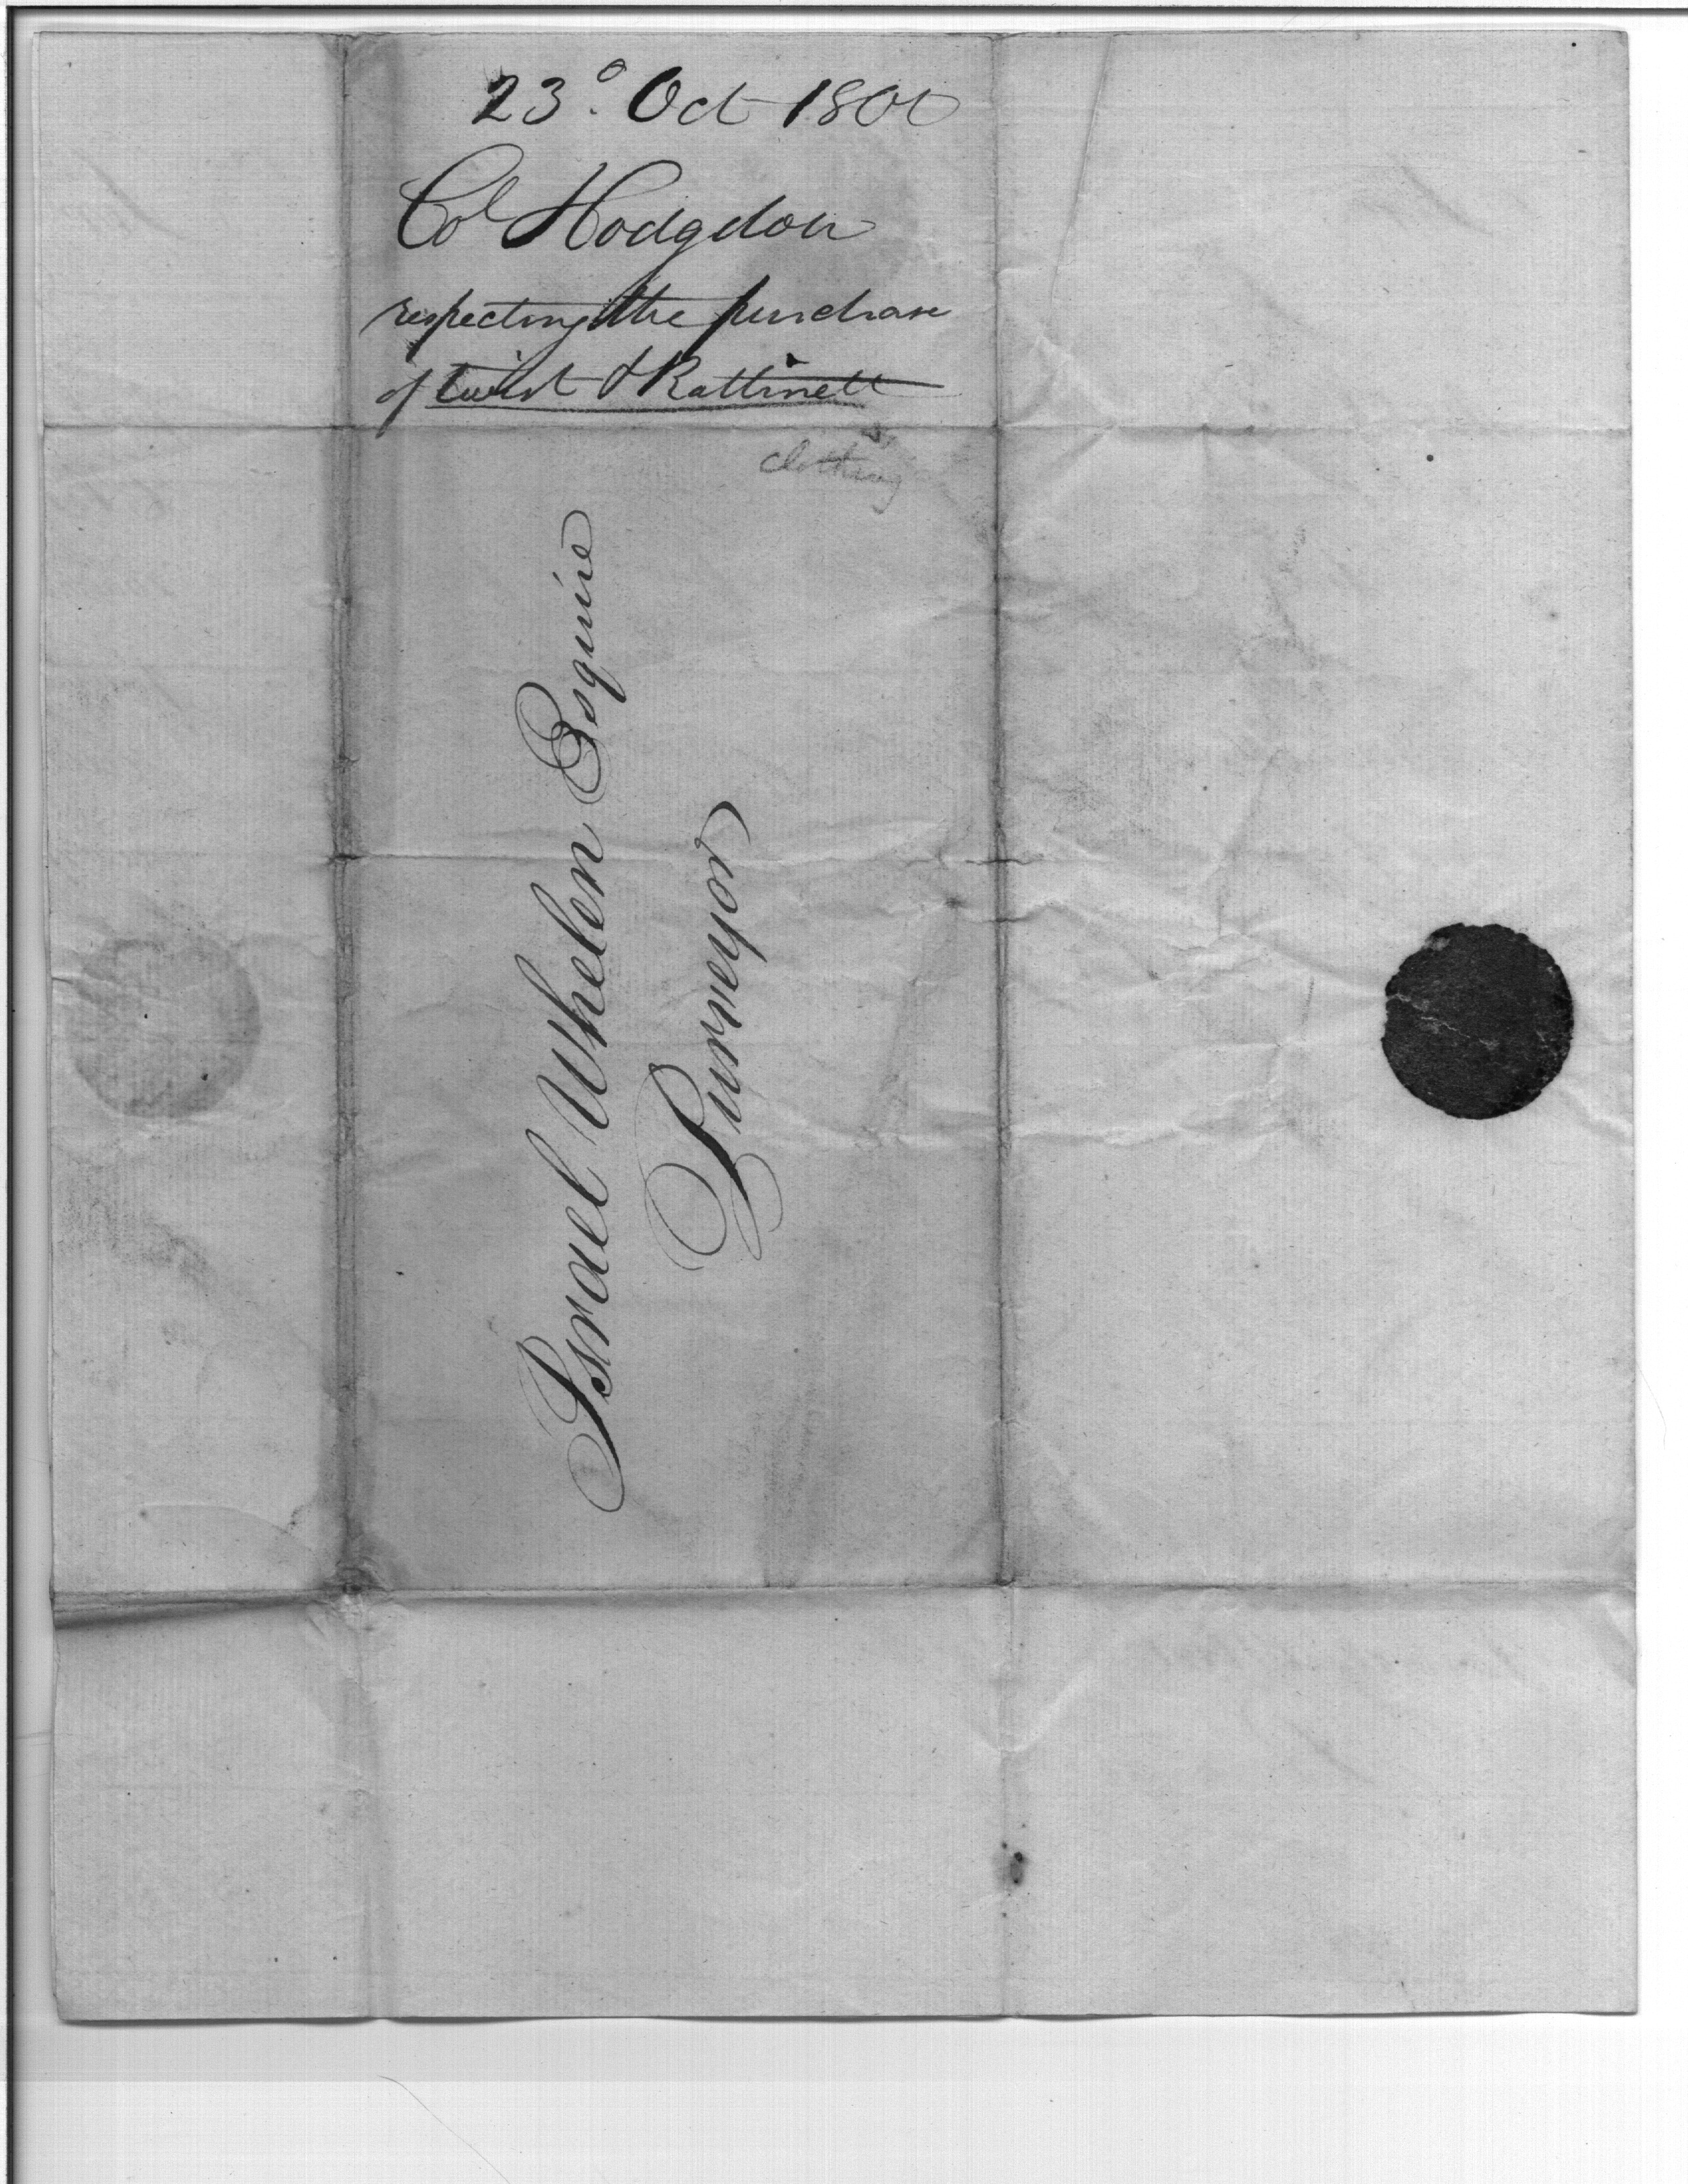 23° Oct 1800
Col Hodgdon
respecting the purchase
of twist & Rattinett
clothing
Israel Whelen Esquire
Purveyor